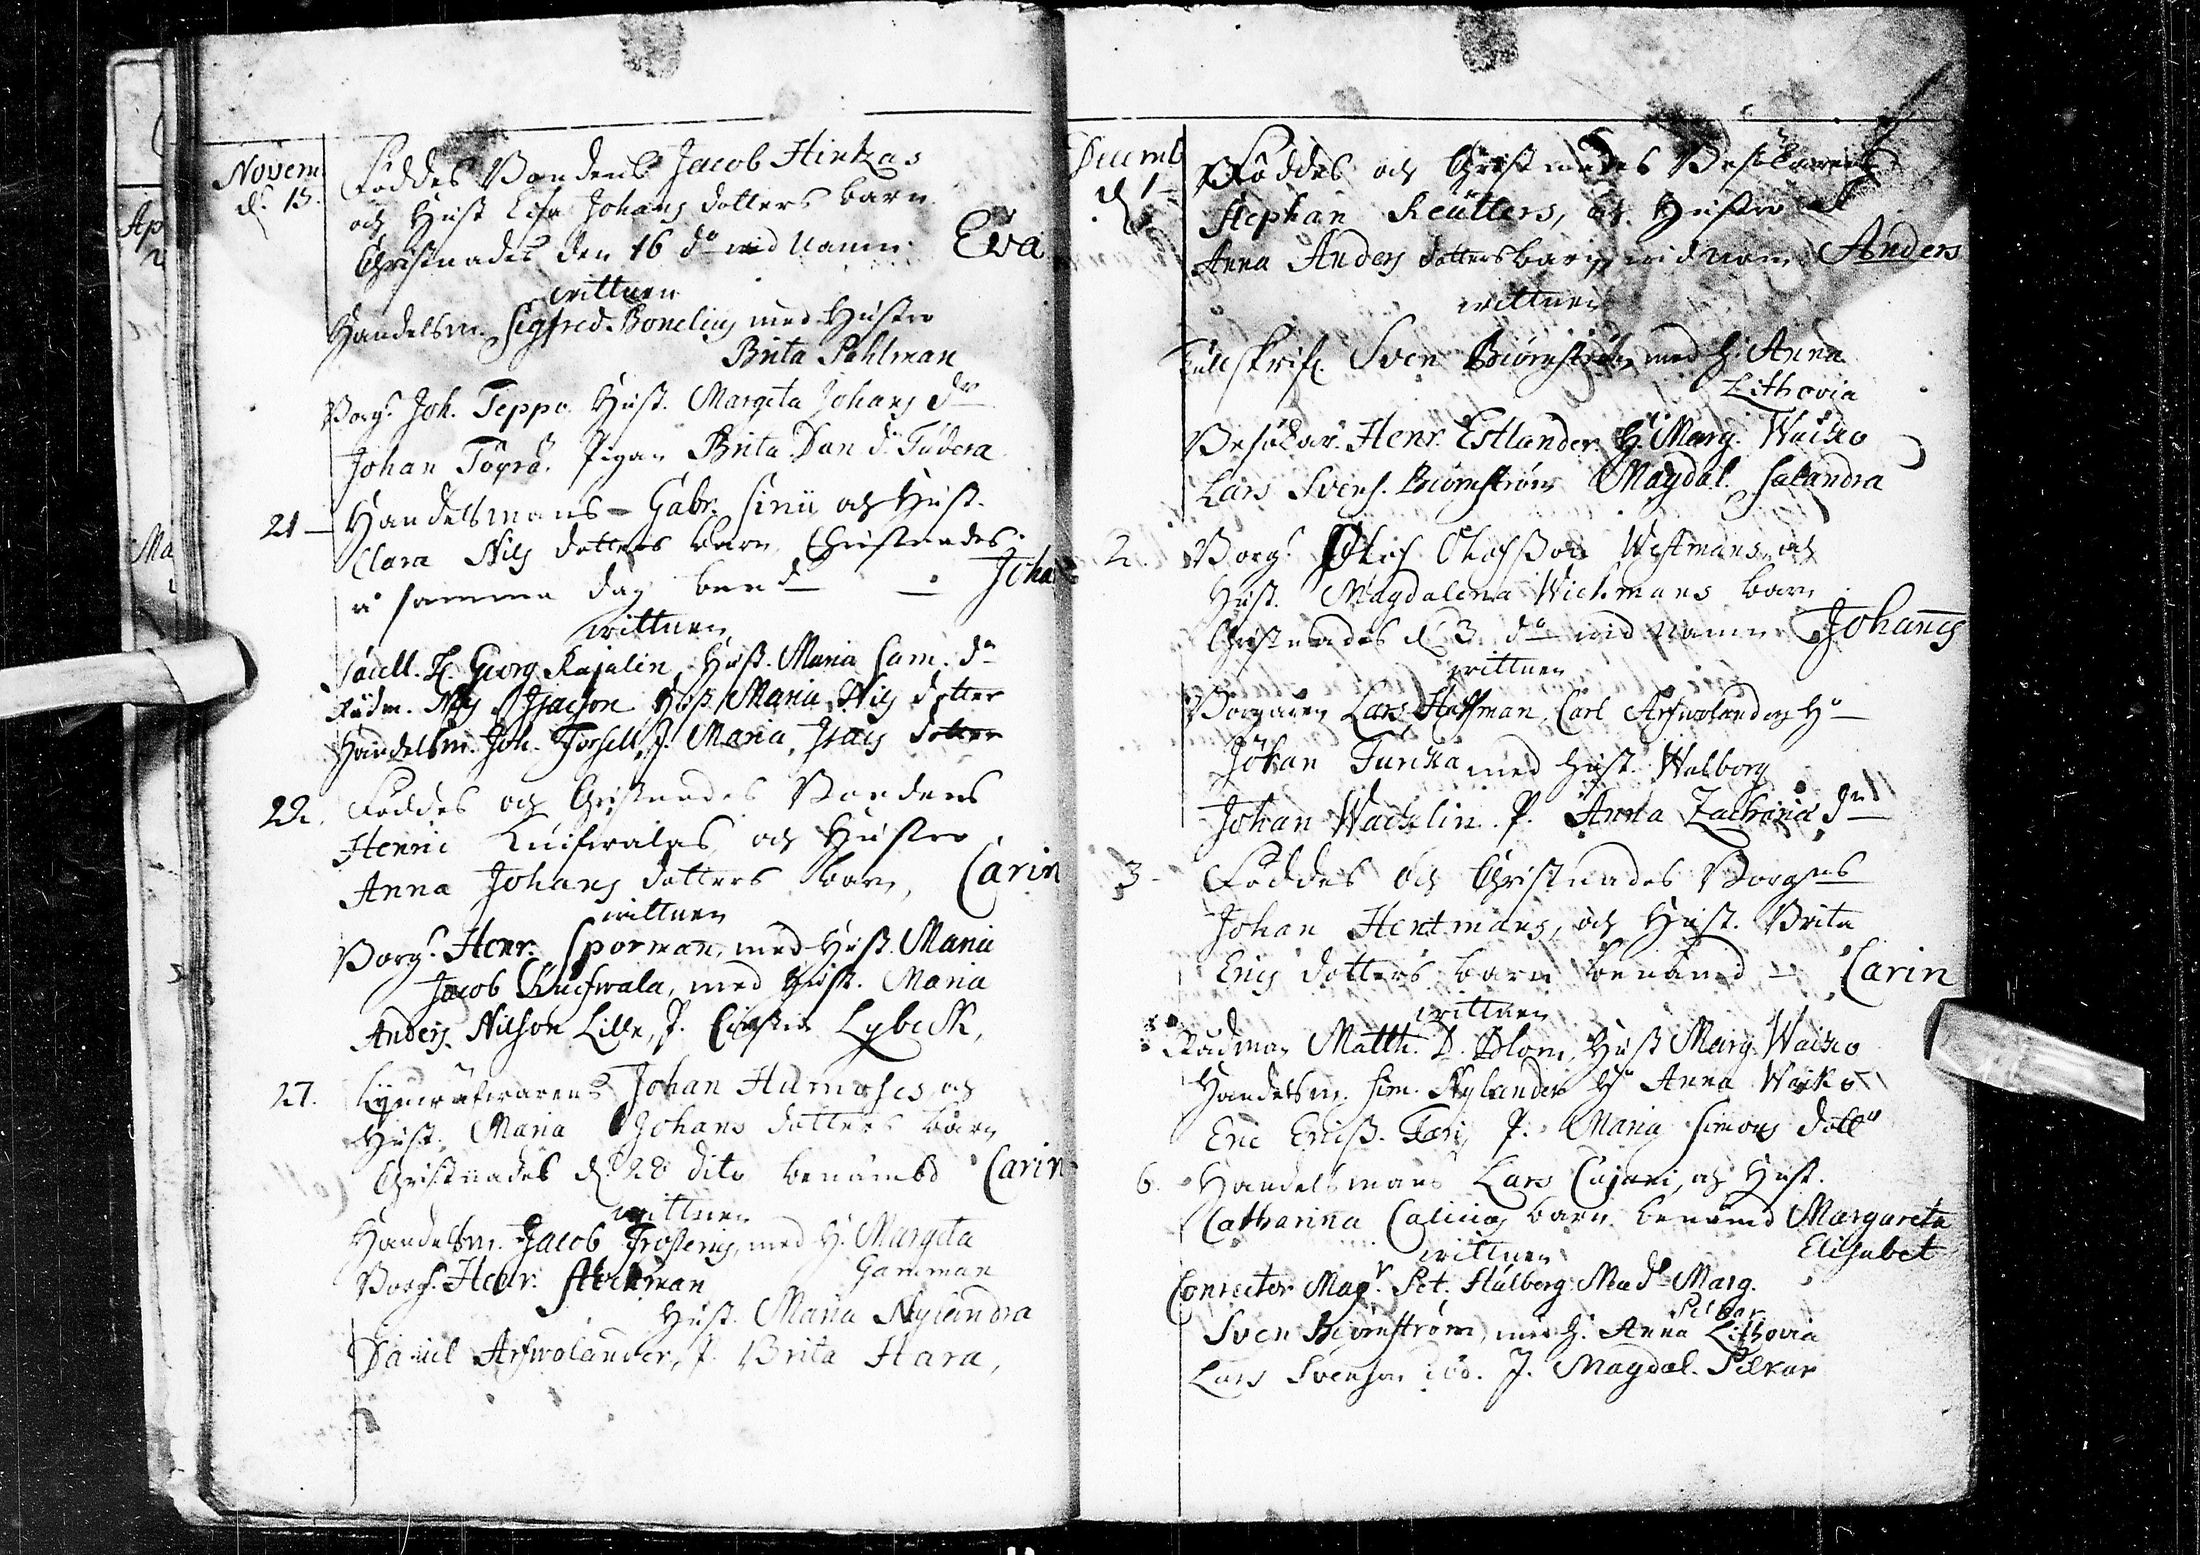 Novem
d. 15. Föddes Bondens Jacob Hinkas
och Hust Lisa Johans dotters barn
Christnades den 16 do wid namn Ewa
wittnen
Handelsm. Sigfred Bonelius med Hustro
Brita Pahlman
Borg. Joh. Teppo. Hust. Margeta Johans dr
Johan Töyrä. Pigan Brita Dan d. Tudera
21 – Handelsmans – Gabr. Sinii och Hust.
Clara Nils dotters barn Christnades
samma dag ben d – Joha
wittnen
H. Georg Kajalin, Hust. Maria Sam. dr
Rådm. Nils Isacson Hust. Maria Nils dotter
Handelsm. Joh. Forsell, J. Maria Isacs dotter
22. Föddes och Christnades Bondens
Henric Kuifwalas och Hustro
Anna Johans dotters barn, Carin
wittnen
Borg. Henr. Sporman, med Hust. Maria
Jacob Kuifwala, med Hust. Maria
Anders Nilson Lille, P. Lybeck,
27. Johan Humoses, och
Hust. Maria Johans dotters barn
Christnades d. 28 dito benämbd Carin
wittnen
Handelsm. Jacob Frosterus, med H. Margeta
Gamman
Borg. Henr. Stekman
Hust. Maria Nylandra
Daniel Arfwolander, P. Brita Hara,
Decemb
d. 1 Föddes och Christnades Besökaren
Stephan Reüllers, och Hustro
Anna Anders dotters barn wid namn Anders
wittnen
Tullskrif. Sven Biörnström med H. Anna
Lithovia
Besökar. Henr. Estlander H. Marg. Waisko
Lars Svens. Biörnström Magdal. Salandra
2. Borg. Olof Olofsson Westmans och
Hust. Magdalena Wichmans barn
Christnades d. 3 do wid namn Johannes
wittnen
Borgaren Lars Hoffman, Carl Arfwolanders Hu
Johan Turcka med Hust. Walborg
Johan Wacklin. P. Anna Zachariæ dr
3 – Föddes och Christnades Borgns
Johan Hentmans, och Hust. Brita
Erics dotters barn benämd – Carin
wittnen
Rådman Matth. D. Blom, Hust Marg. Waisko
Handelsm. Sim. Nylander Hu Anna Waisko
Eric Erics. P. Maria Simons dottr
6. Handelsmans Lars Cajani, och Hust.
Catharina Calinas barn benämd Margareta
Elisabet
wittnen
Conrector Magr. Pet. Hålberg Mad. Marg.
Pilkar
Sven Biörnström, med H. Anna Lithovia
Lars Svenson J. Magdal. Pilkar